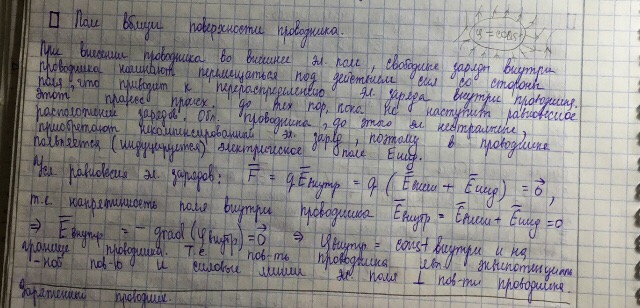 Поле вблизи поверхности проводника.
φ = const
При внесении проводника во внешнее эл. поле, свободные заряды внутри
проводника начинают перемещаться под действием сил со стороны
поля, что приводит к перераспределению эл. заряда внутри проводника.
Этот процесс происх. до тех пор, пока не наступит равновесное
расположение зарядов. Обл. проводника, до этого эл. нейтральные,
приобретают некомпенсированный эл. заряд, поэтому в проводнике
появляется (индуцируется) электрическое поле Eинд.
Усл. равновесия эл. зарядов: F̄ = qĒвнутр = q(Ēвнеш + Ēинд) = 0⃗,
т.е. напряженность поля внутри проводника Ēвнутр = Ēвнеш + Ēинд = 0
⇒ Ēвнутр = - grad(φвнутр) = 0⃗ ⇒ φвнутр = const внутри и на
границе проводника. Т.е. пов-ть проводника явл. эквипотенциаль
-ной пов-ю и силовые линии эл. поля ⊥ пов-ти проводника
Заряженный проводник.